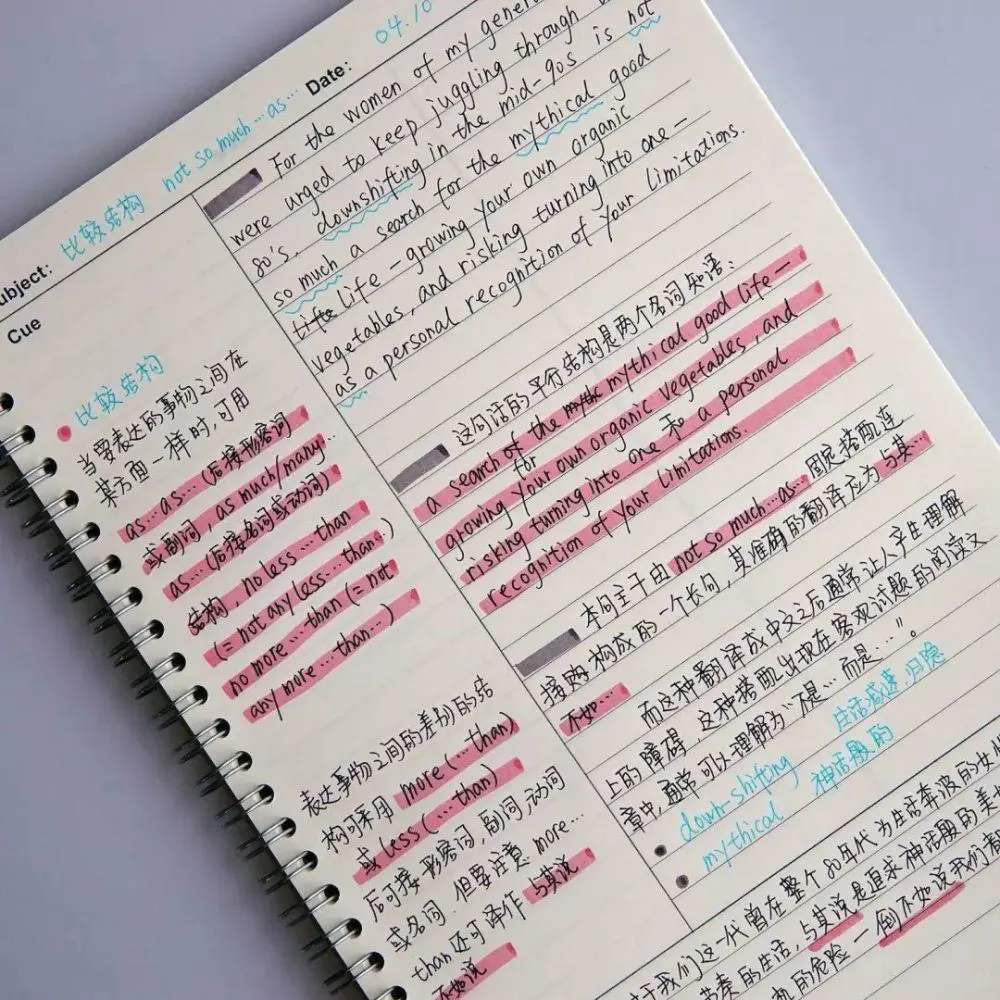 04.10
Date:
Subject: 比较结构 not so much…as…
For the women of my gener
were urged to keep juggling through
80's, downshifting in the mid-90s is not
so much a search for the mythical good
life — growing your own organic
vegetables, and risking turning into one —
as a personal recognition of your limitations.
这句话的平行结构是两个名词短语:
a search of the mythical good life —
for
growing your own organic vegetables, and
risking turning into one 和 a personal
recognition of your limitations.
本句主干由 not so much…as… 固定搭配连
接购构成的一个长句, 其准确的翻译应为 与其…
不如…
而这种翻译成中文之后通常让人产生理解
上的障碍 这种搭配出现在客观试题的阅读文
章中, 通常可以理解为"不是…而是…"。
down-shifting 生活减速, 归隐
mythical 神话般的
于我们这一代曾在整个80年代为生活奔波的女
节奏的生活, 与其说是追求神话般的美
机的危险 — 倒不如说我们
Cue
比较结构
当要表达的事物之间在
某方面一样时, 可用
as…as… (后接形容词
或副词, as much/many…
as… (后接名词或动词)
结构, no less…than
(= not any less…than…)
no more…than (= not
any more…than…)
表达事物之间的差别的结
构可采用 more (…than)
或 less (…than)
后可接形容词, 副词 动词
或名词. 但要注意 more…
than 还可译作 与其说
不如说